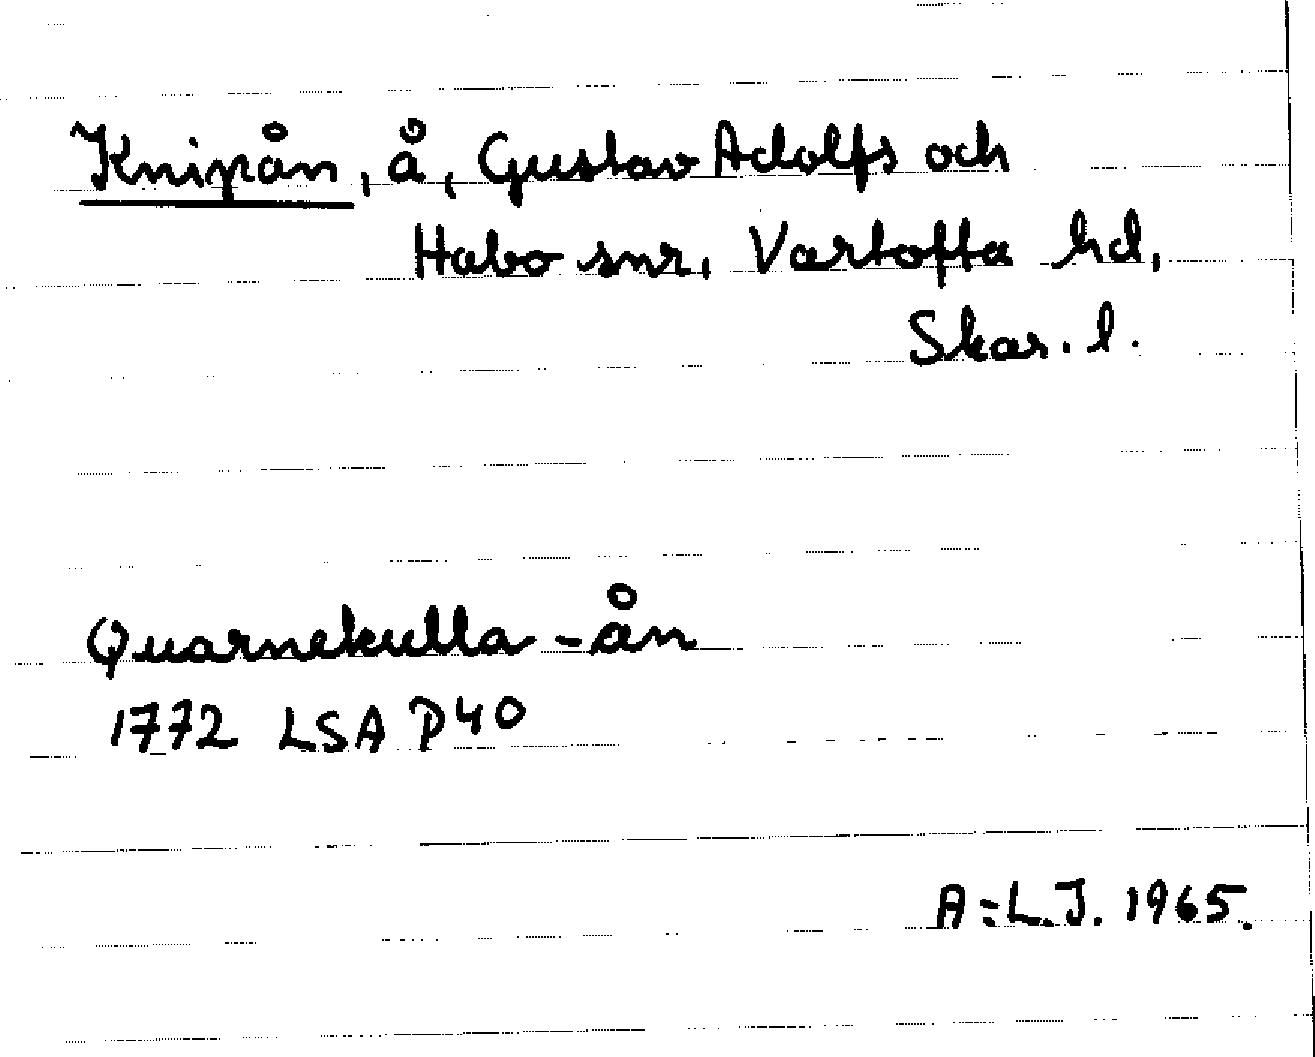 Knipån, å, Gustav Adolfs och
Habo snr, Vartofta hd,
Skar. l.
Quarnekulla-ån
1772 LSA P40
A:L.J. 1965.